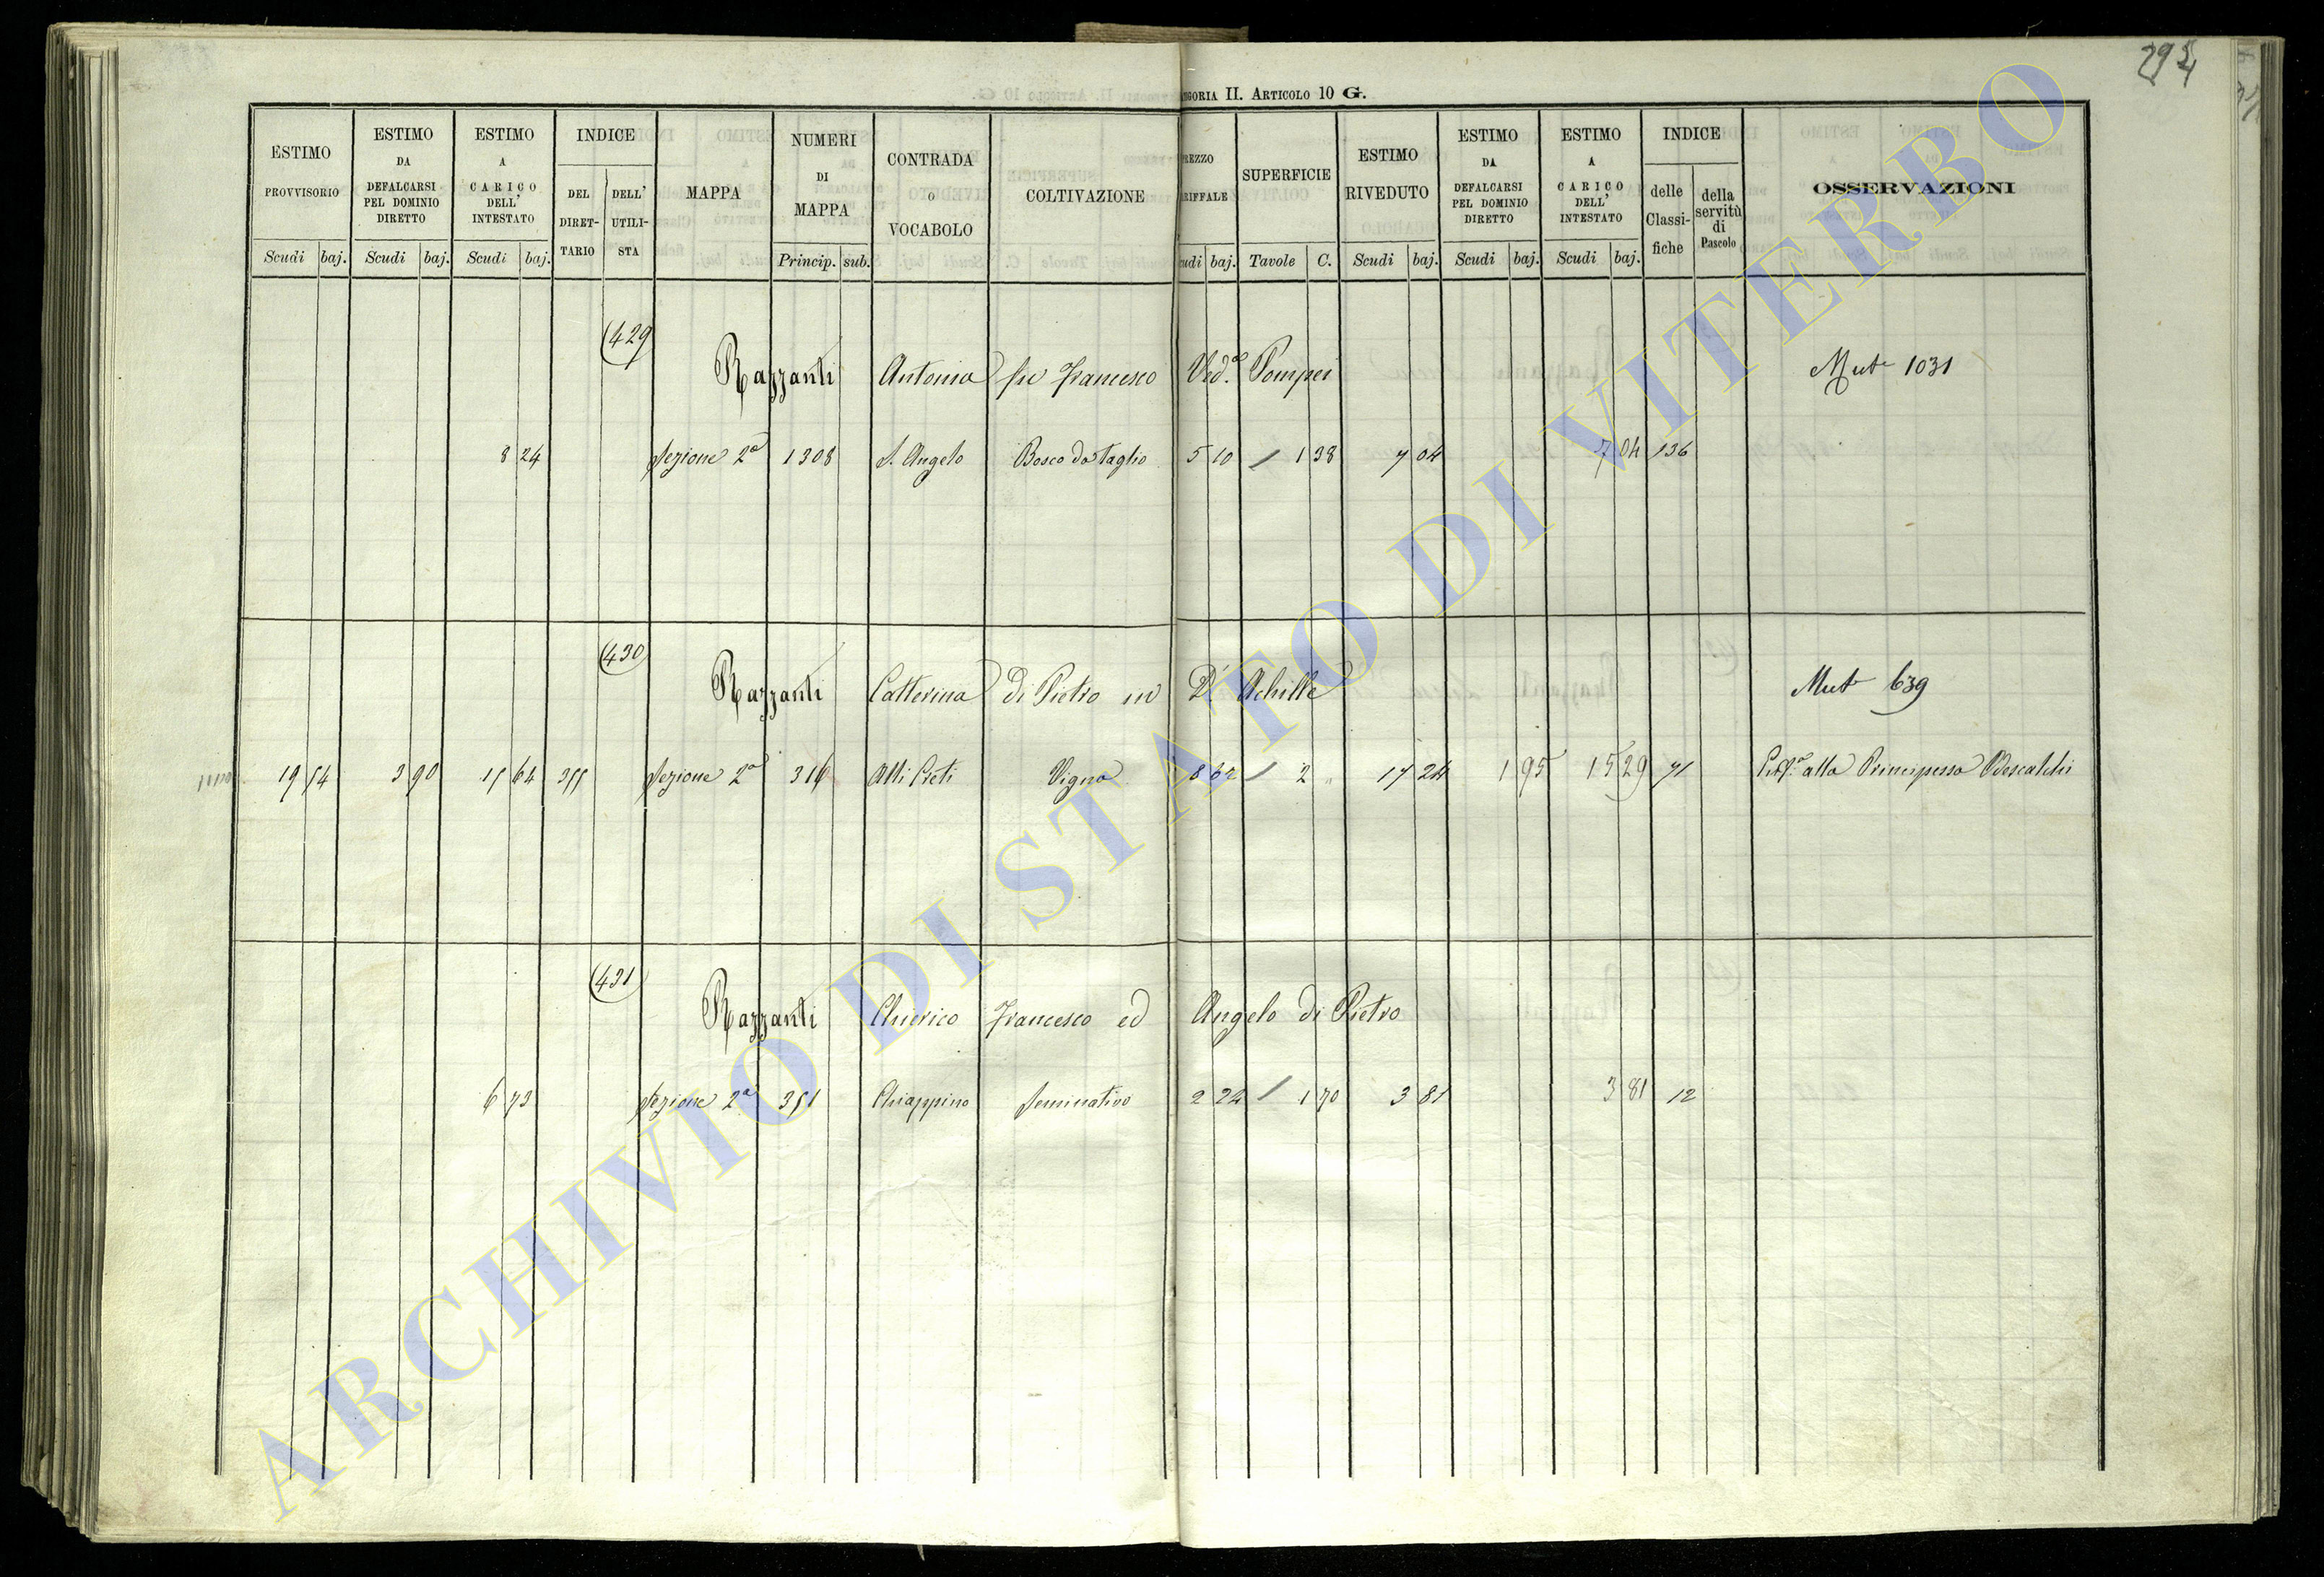 294
GORIA II. ARTICOLO 10 G.
ESTIMO PROVVISORIO
ESTIMO DA DEFALCARSI PEL DOMINIO DIRETTO
ESTIMO A CARICO DELL' INTESTATO
INDICE
DEL DIRETTARIO
DELL' UTILISTA
MAPPA
NUMERI DI MAPPA
CONTRADA O VOCABOLO
COLTIVAZIONE
REZZO RIFFALE
SUPERFICIE
ESTIMO RIVEDUTO
ESTIMO DA DEFALCARSI PEL DOMINIO DIRETTO
ESTIMO A CARICO DELL' INTESTATO
INDICE
delle Classifiche
della servitù di Pascolo
OSSERVAZIONI
Scudi baj. Scudi baj. Scudi baj. Princip. sub. udi baj. Tavole C. Scudi baj. Scudi baj. Scudi baj.
(429)
Razzanti Antonia fu Francesco Ved.a Pompei Mut 1031
8 24 Sezione 2a 1308 S. Angelo Bosco da Taglio 5 10 / 1 38 7 04 7 04 136
(430)
Razzanti Catterina di Pietro in D'Achille Mut 639
19 54 3 90 15 64 355 Sezione 2a 316 Vigna 8 62 / 2 " 17 24 1 95 15 29 71 alla Principessa Odescalchi
(431)
Razzanti Chierico Francesco ed Angelo di Pietro
6 73 Sezione 2a 351 Chiappino Seminativo 2 24 / 1 70 3 81 3 81 12
ARCHIVIO DI STATO DI VITERBO